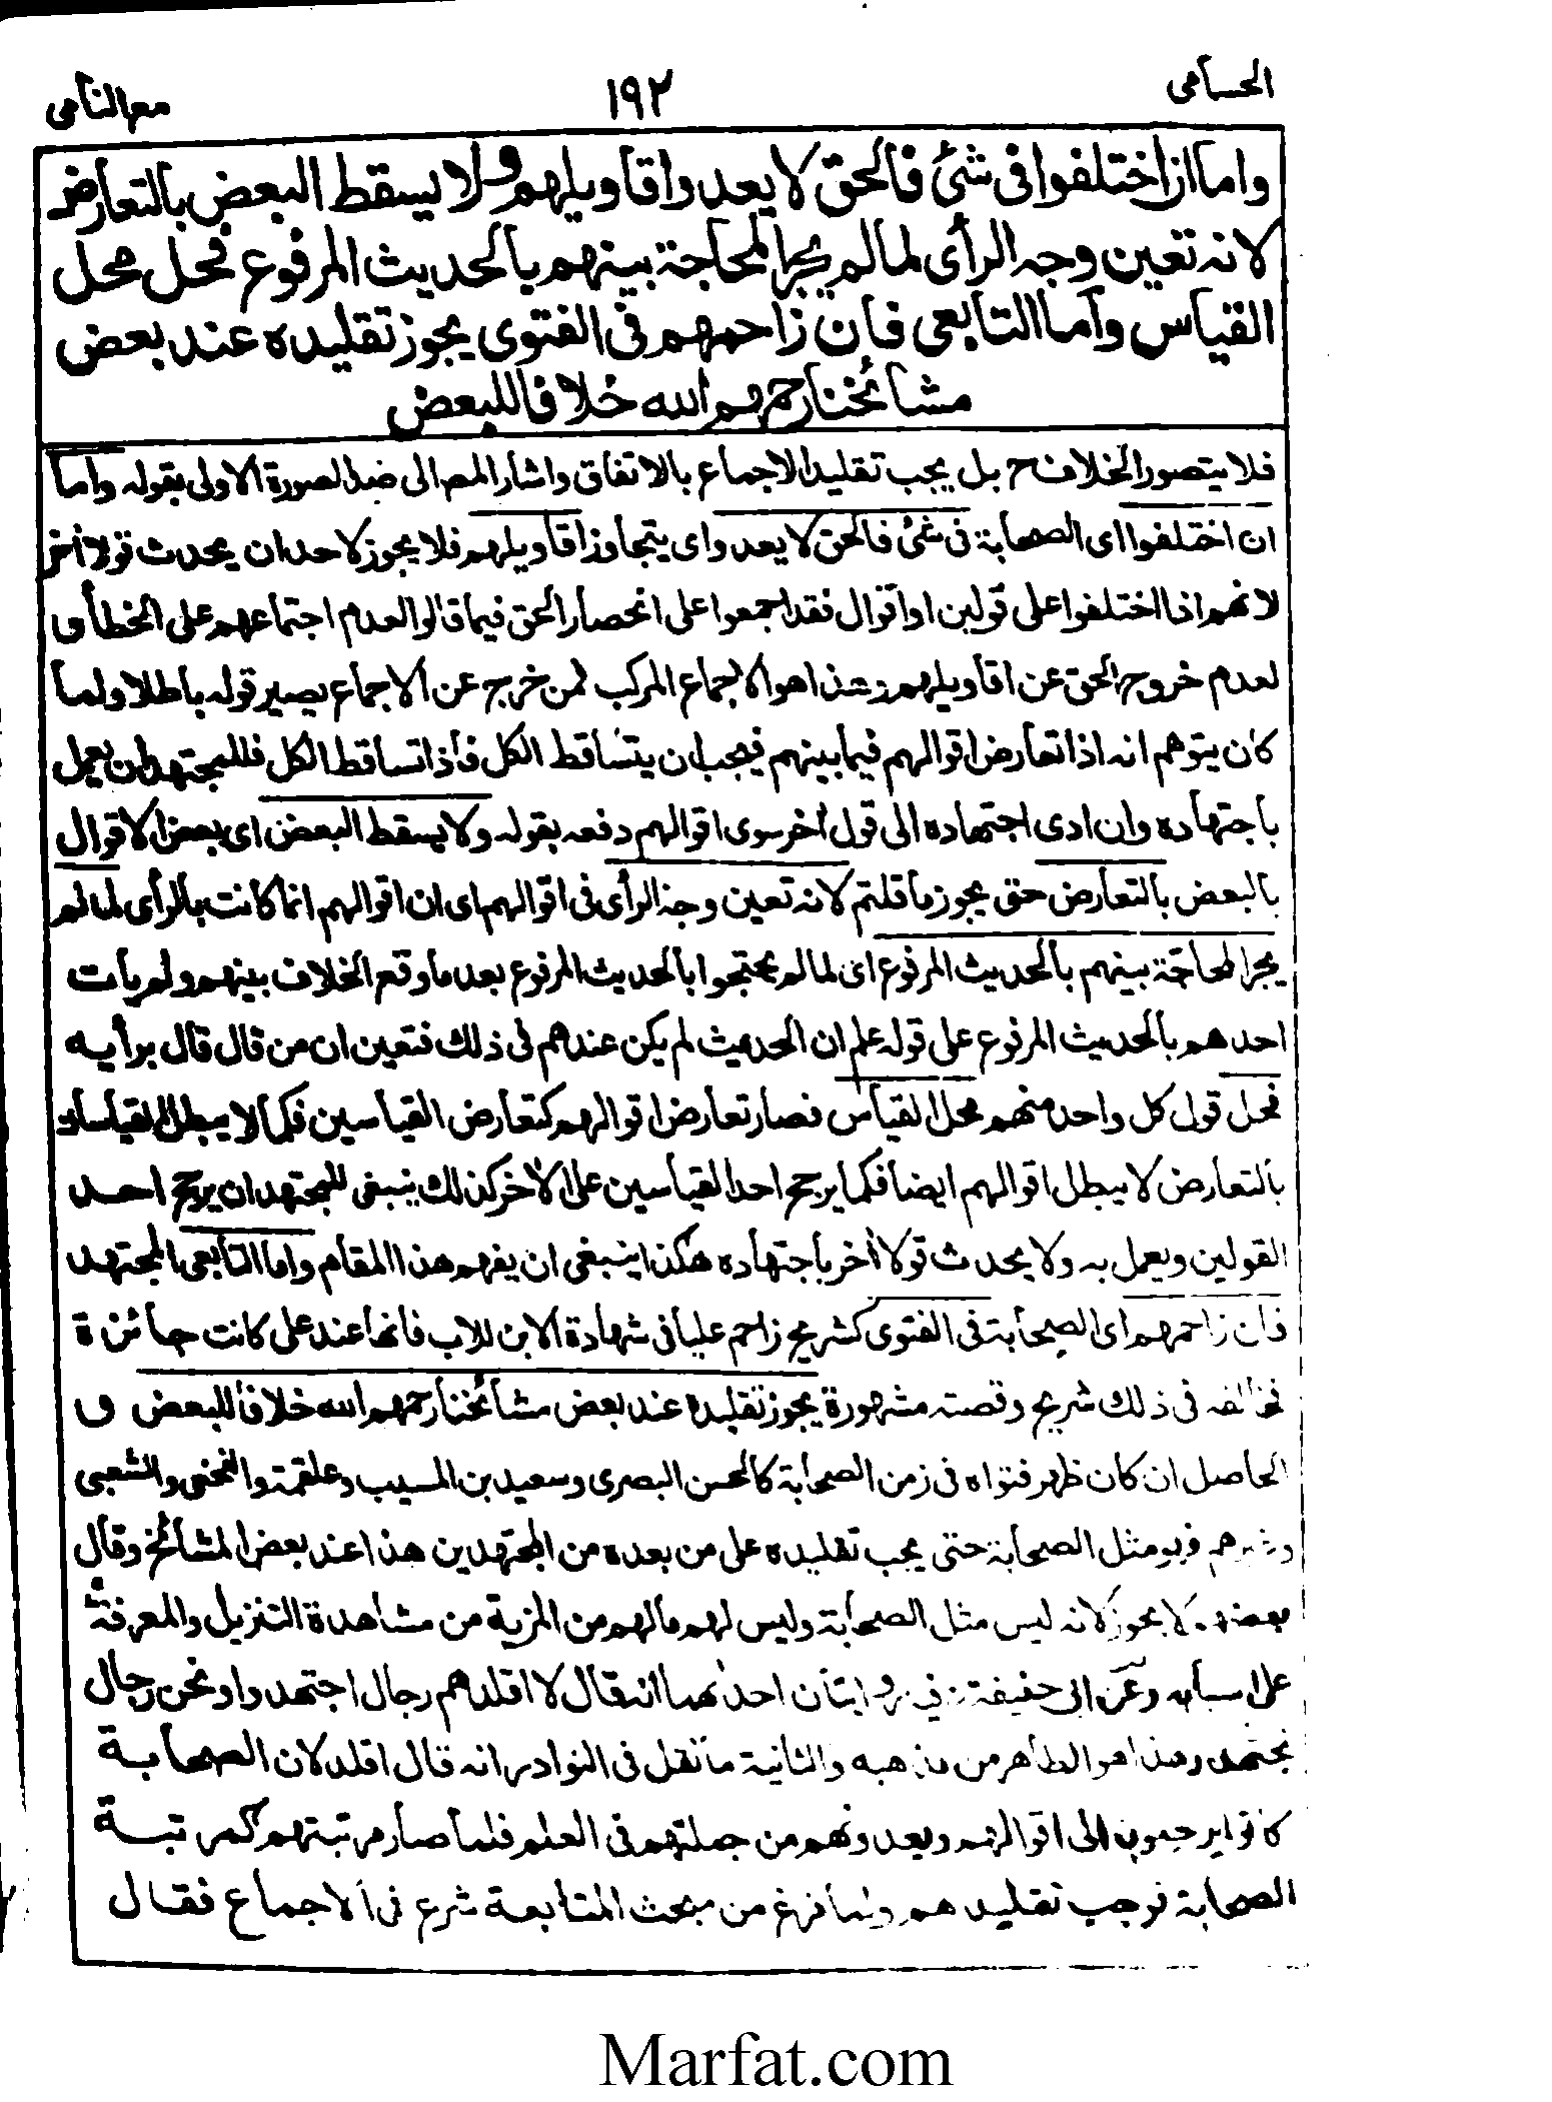 الحسامی
۱۹۲
مع النامی
واما ان اختلفوا فی شئ فالحق لا يعدو اقاويلهم ولا يسقط البعض بالتعارض
لانه تعين وجه الرأی لما لم يجر المحاجة بينهم بالحديث المرفوع فحل محل
القياس واما التابعی فان زاحمهم فی الفتوی يجوز تقليده عند بعض
مشائخنا رحمهم الله خلافا للبعض
فلا يتصور الخلاف ح بل يجب تقليد الاجماع بالاتفاق واشار المصـ الی ضد الصورة الاولی بقوله واما
ان اختلفوا ای الصحابة فی شئ فالحق لا يعدو ای يتجاوز اقاويلهم فلا يجوز لاحد ان يحدث قولا أخر
لانهم اذا اختلفوا علی قولين او اقوال فقد اجمعوا علی انحصار الحق فيما قالوا لعدم اجتماعهم علی الخطأ و
لعدم خروج الحق عن اقاويلهم وهذا هو الاجماع المركب لمن خرج عن الاجماع يصير قوله باطلا ولما
كان يتوهم انه اذا تعارض اقوالهم فيما بينهم فيجب ان يتساقط الكل فأذا تساقط الكل فللمجتهد ان يعمل
باجتهاده وان ادی اجتهاده الی قول أخر سوی اقوالهم دفعه بقوله ولا يسقط البعض ای بعض الاقوال
بالبعض بالتعارض حتی يجوز ما قلتم لانه تعين وجه الرأی فی اقوالهم ای ان اقوالهم انما كانت بالرأی لما لم
يجر المحاجّة بينهم بالحديث المرفوع ای لما لم يحتجوا بالحديث المرفوع بعد ما وقع الخلاف بينهم ولم يأت
احدهم بالحديث المرفوع علی قوله علم ان الحديث لم يكن عندهم فی ذلك فتعين ان من قال قال برأيه
فحل قول كل واحد منهم محل القياس فصار تعارض اقوالهم كتعارض القياسين فكما لا يبطل القياسان
بالتعارض لا يبطل اقوالهم ايضا فكما يرجح احد القياسين علی الأخر كذلك ينبغی للمجتهد ان يرجح احد
القولين ويعمل به ولا يحدث قولا أخر باجتهاده هكذا ينبغی ان يفهم هذا المقام واما التابعی المجتهد
فان زاحمهم ای الصحابة فی الفتوی كشريح زاحم عليا فی شهادة الابن للاب فانها عند علی كانت جائزة
فخالفه فی ذلك شريح وقصته مشهورة يجوز تقليده عند بعض مشائخنا رحمهم الله خلافا للبعض و
الحاصل ان كان ظهر فتواه فی زمن الصحابة كالحسن البصری وسعيد بن المسيب وعلقمة والنخعی والشعبی
وغيرهم فهو مثل الصحابة حتی يجب تقليده علی من بعده من المجتهدين هذا عند بعض المشائخ وقال
بعضهم لا يجوز لانه ليس مثل الصحابة وليس لهم مالهم من المزية من مشاهدة التنزيل والمعرفة
علی اسبابه وعن ابی حنيفة فيه روايتان احدٰهما انه قال لا اقلدهم رجال اجتهدوا ونحن رجال
نجتهد وهذا هو الظاهر من مذهبه والثانية ما نقل فی النوادر انه قال اقلد لان الصحابة
كانوا يرجعون الی اقوالهم ويعدونهم من جملتهم فی العلم فلما صار مرتبتهم كمرتبة
الصحابة فوجب تقليدهم ولما فرغ من مبحث المتابعة شرع فی الاجماع فقال
Marfat.com